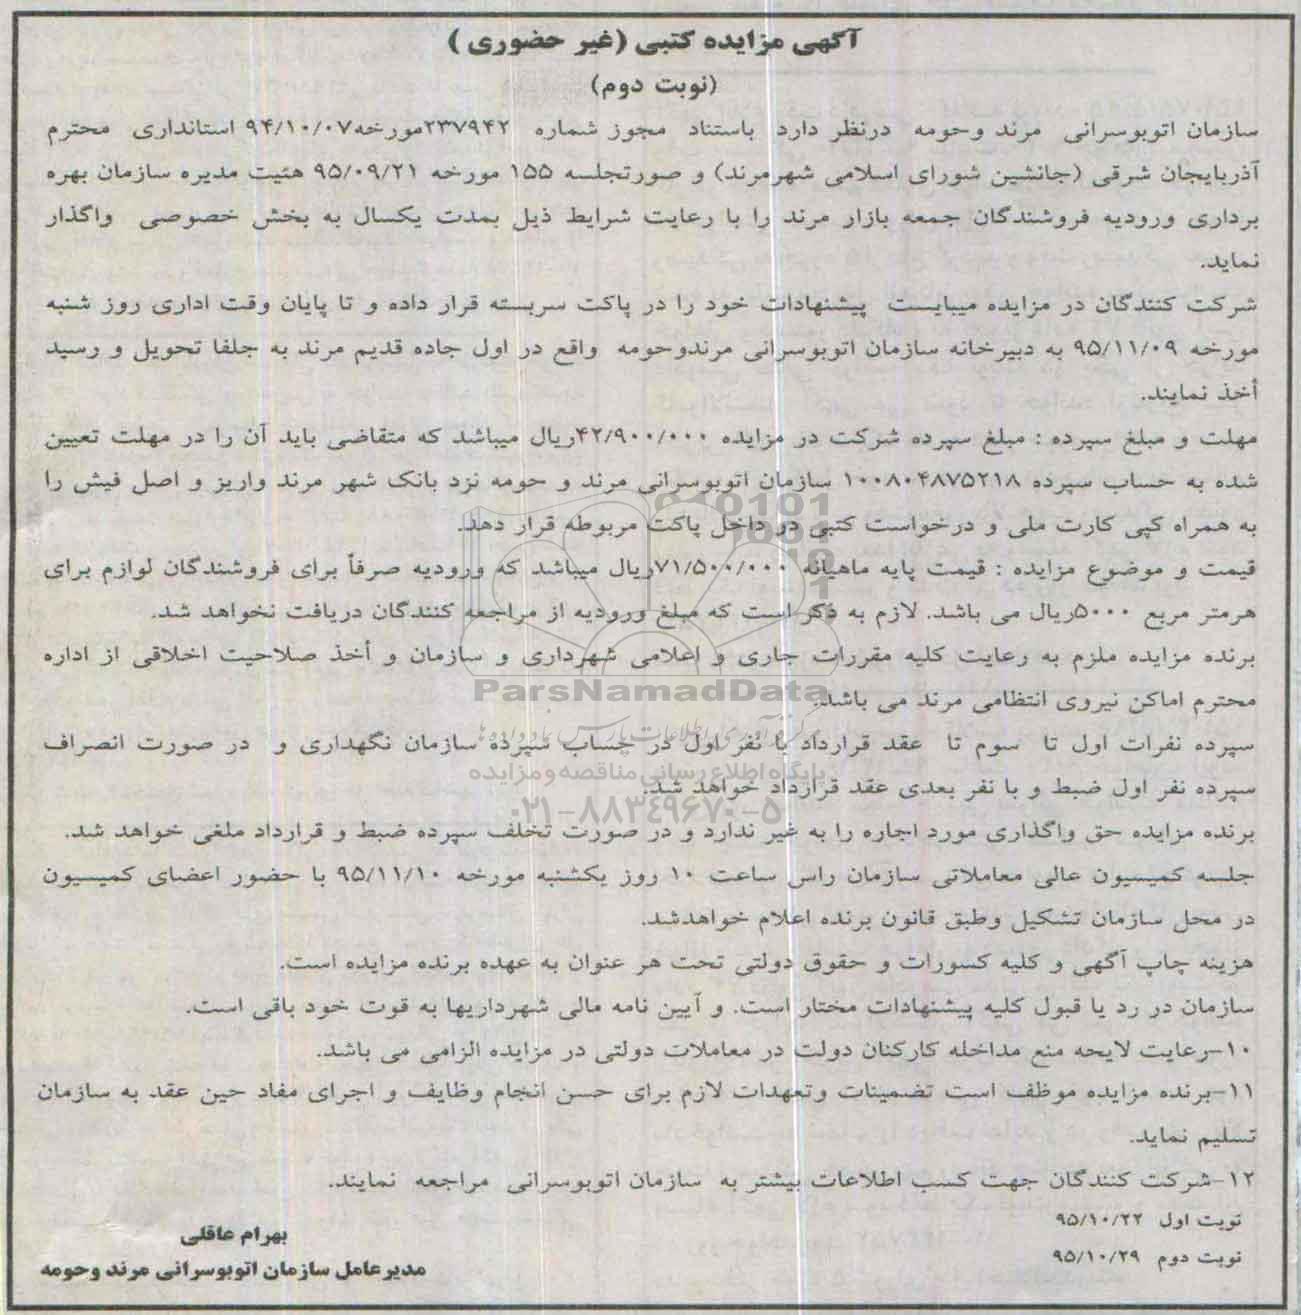 آگهی مزایده کتبی (غیر حضوری )
(نوبت دوم)
سازمان اتوبوسرانی مرند وحومه درنظر دارد باستناد مجوز شماره ۲۳۷۹۴۲مورخه۹۴/۱۰/۰۷ استانداری محترم
آذربایجان شرقی (جانشین شورای اسلامی شهرمرند) و صورتجلسه ۱۵۵ مورخه ۹۵/۰۹/۲۱ هئیت مدیره سازمان بهره
برداری ورودیه فروشندگان جمعه بازار مرند را با رعایت شرایط ذیل بمدت یکسال به بخش خصوصی واگذار
نماید.
شرکت کنندگان در مزایده میبایست پیشنهادات خود را در پاکت سربسته قرار داده و تا پایان وقت اداری روز شنبه
مورخه ۹۵/۱۱/۰۹ به دبیرخانه سازمان اتوبوسرانی مرندوحومه واقع در اول جاده قدیم مرند به جلفا تحویل و رسید
أخذ نمایند.
مهلت و مبلغ سپرده : مبلغ سپرده شرکت در مزایده ۴۲/۹۰۰/۰۰۰ریال میباشد که متقاضی باید آن را در مهلت تعیین
شده به حساب سپرده ۱۰۰۸۰۴۸۷۵۲۱۸ سازمان اتوبوسرانی مرند و حومه نزد بانک شهر مرند واریز و اصل فیش را
به همراه کپی کارت ملی و درخواست کتبی در داخل پاکت مربوطه قرار دهد.
قیمت و موضوع مزایده : قیمت پایه ماهیانه ۷۱/۵۰۰/۰۰۰ریال میباشد که ورودیه صرفاً برای فروشندگان لوازم برای
هرمتر مربع ۵۰۰۰ریال می باشد. لازم به ذکر است که مبلغ ورودیه از مراجعه کنندگان دریافت نخواهد شد.
برنده مزایده ملزم به رعایت کلیه مقررات جاری و اعلامی شهرداری و سازمان و أخذ صلاحیت اخلاقی از اداره
محترم اماکن نیروی انتظامی مرند می باشد.
ParsNamadData
سپرده نفرات اول تا سوم تا عقد قرارداد با نفر اول در حساب سپرده سازمان نگهداری و در صورت انصراف
پایگاه اطلاع رسانی مناقصه و مزایده
سپرده نفر اول ضبط و با نفر بعدی عقد قرارداد خواهد شد.
۰۲۱-۸۸۳۴۹۶۷۰-۵
برنده مزایده حق واگذاری مورد اجاره را به غیر ندارد و در صورت تخلف سپرده ضبط و قرارداد ملغی خواهد شد.
جلسه کمیسیون عالی معاملاتی سازمان راس ساعت ۱۰ روز یکشنبه مورخه ۹۵/۱۱/۱۰ با حضور اعضای کمیسیون
در محل سازمان تشکیل وطبق قانون برنده اعلام خواهدشد.
هزینه چاپ آگهی و کلیه کسورات و حقوق دولتی تحت هر عنوان به عهده برنده مزایده است.
سازمان در رد یا قبول کلیه پیشنهادات مختار است. و آیین نامه مالی شهرداریها به قوت خود باقی است.
۱۰-رعایت لایحه منع مداخله کارکنان دولت در معاملات دولتی در مزایده الزامی می باشد.
۱۱-برنده مزایده موظف است تضمینات وتعهدات لازم برای حسن انجام وظایف و اجرای مفاد حین عقد به سازمان
تسلیم نماید.
۱۲-شرکت کنندگان جهت کسب اطلاعات بیشتر به سازمان اتوبوسرانی مراجعه نمایند.
نوبت اول ۹۵/۱۰/۲۲
نوبت دوم ۹۵/۱۰/۲۹
بهرام عاقلی
مدیرعامل سازمان اتوبوسرانی مرند وحومه